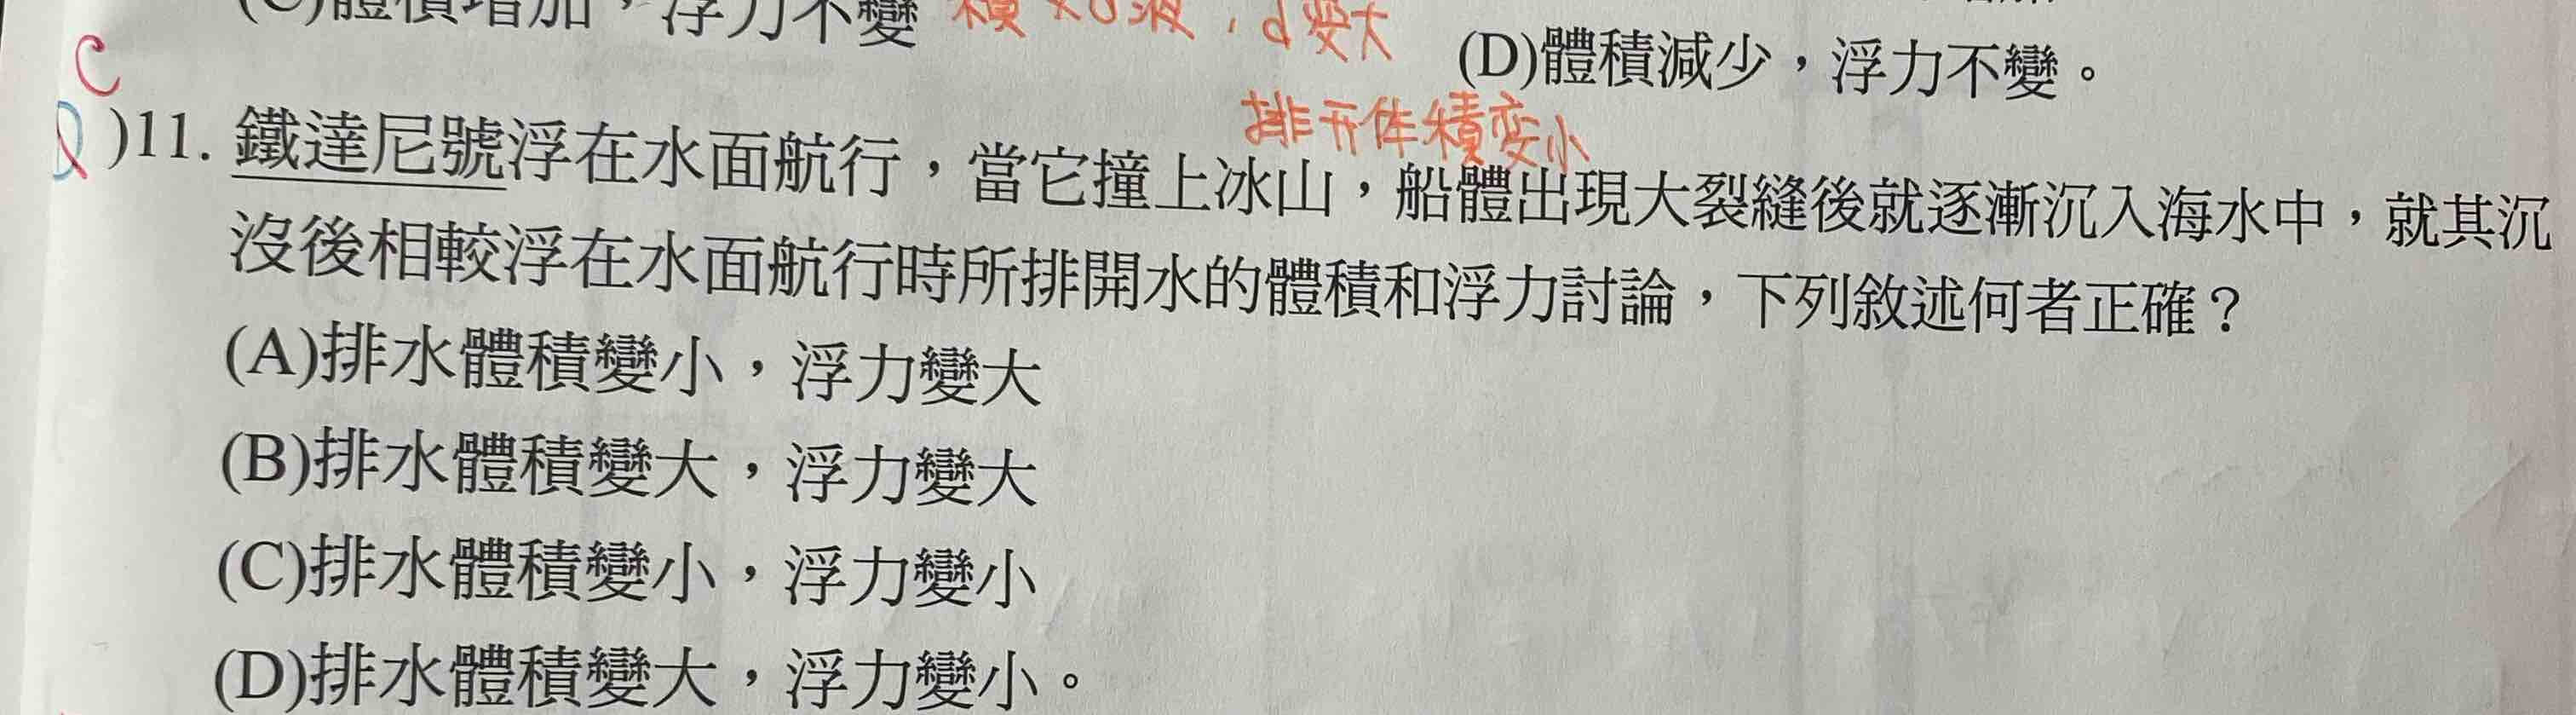 (C)體積增加，浮力不變
變大
(D)體積減少，浮力不變。
C
排开体積变小
)11. 鐵達尼號浮在水面航行，當它撞上冰山，船體出現大裂縫後就逐漸沉入海水中，就其沉
沒後相較浮在水面航行時所排開水的體積和浮力討論，下列敘述何者正確？
(A)排水體積變小，浮力變大
(B)排水體積變大，浮力變大
(C)排水體積變小，浮力變小
(D)排水體積變大，浮力變小。